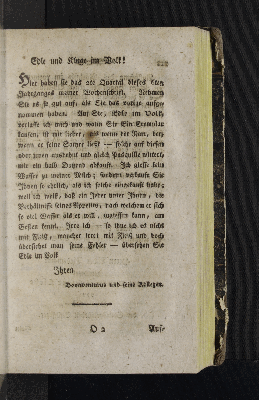 Edle und Kluge im Volk!
Hier haben sie das 2te Quartal dieses 6ten
Jahrganges meiner Wochenschrift. Nehmen
Sie es so gut auf, als Sie das vorige aufge-
nommen haben. Auf Sie, Edle im Volk,
verlasse ich mich und wann Sie Ein Exemplar
kaufen, ist mir lieber, als wenn der Narr, der,
wann er seine Satyre ließt — solche auf diesen
oder jenen ausdehnt und gleich Pasquille wittert,
mir ein halb Dutzend abkauft. Ich giesse kein
Wasser zu meiner Milch; sondern verkaufe Sie
Ihnen so ehrlich, als ich solche eingekauft habe;
weil ich weiß, daß ein Jeder unter Ihnen, die
Verhältnisse seines Appetits, nach welchem er sich
so viel Wasser als er will, zugiessen kann, am
Besten kennt. Irre ich — so thue ich es nicht
mit Fleiß, mancher irret mit Fleiß und doch
übersiehet man seine Fehler — übersehen Sie
Edle im Volk
Ihren
und seine Kollegen.
O 2